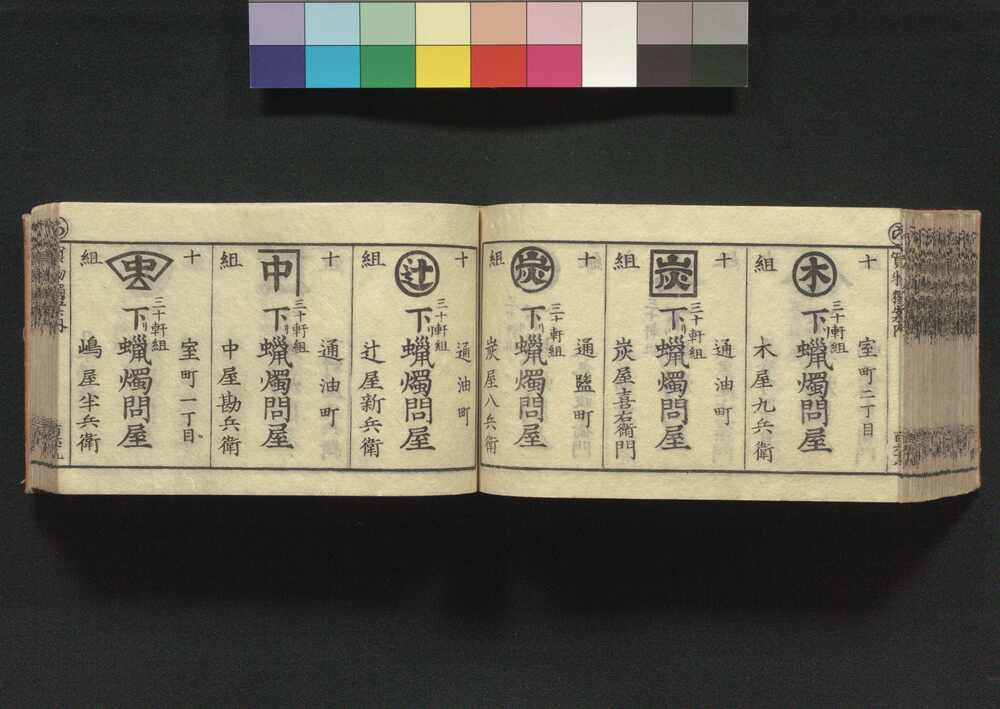 十
組
木
室町二丁目
三十軒組
下り蠟燭問屋
木屋九兵衛
十
組
炭
通油町
三十軒組
下り蠟燭問屋
炭屋喜右衛門
十
組
炭
通塩町
三十軒組
下り蠟燭問屋
炭屋八兵衛
十
組
辻
通油町
三十軒組
下り蠟燭問屋
辻屋新兵衛
十
組
中
通油町
三十軒組
下り蠟燭問屋
中屋勘兵衛
十
組
室町一丁目
三十軒組
下り蠟燭問屋
嶋屋半兵衛